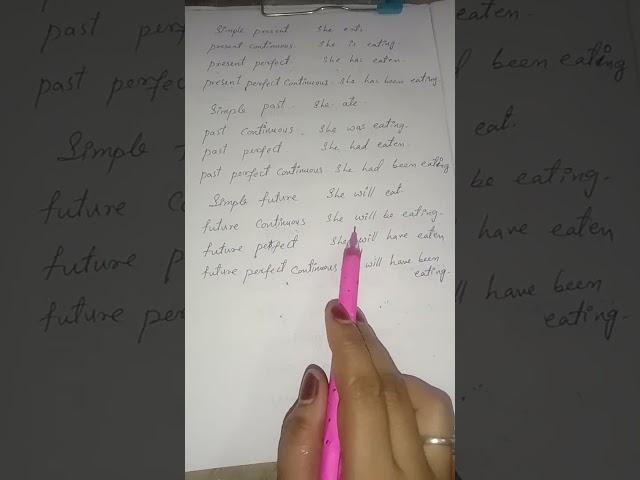 Simple present She eats
present continuous She is eating
present perfect She has eaten.
present perfect continuous. She has been eating.
Simple past. She ate.
past continuous. She was eating.
past perfect She had eaten.
past perfect continuous She had been eating
Simple future She will eat.
future continuous She will be eating.
future perfect She will have eaten
future perfect continuous will have been
eating.